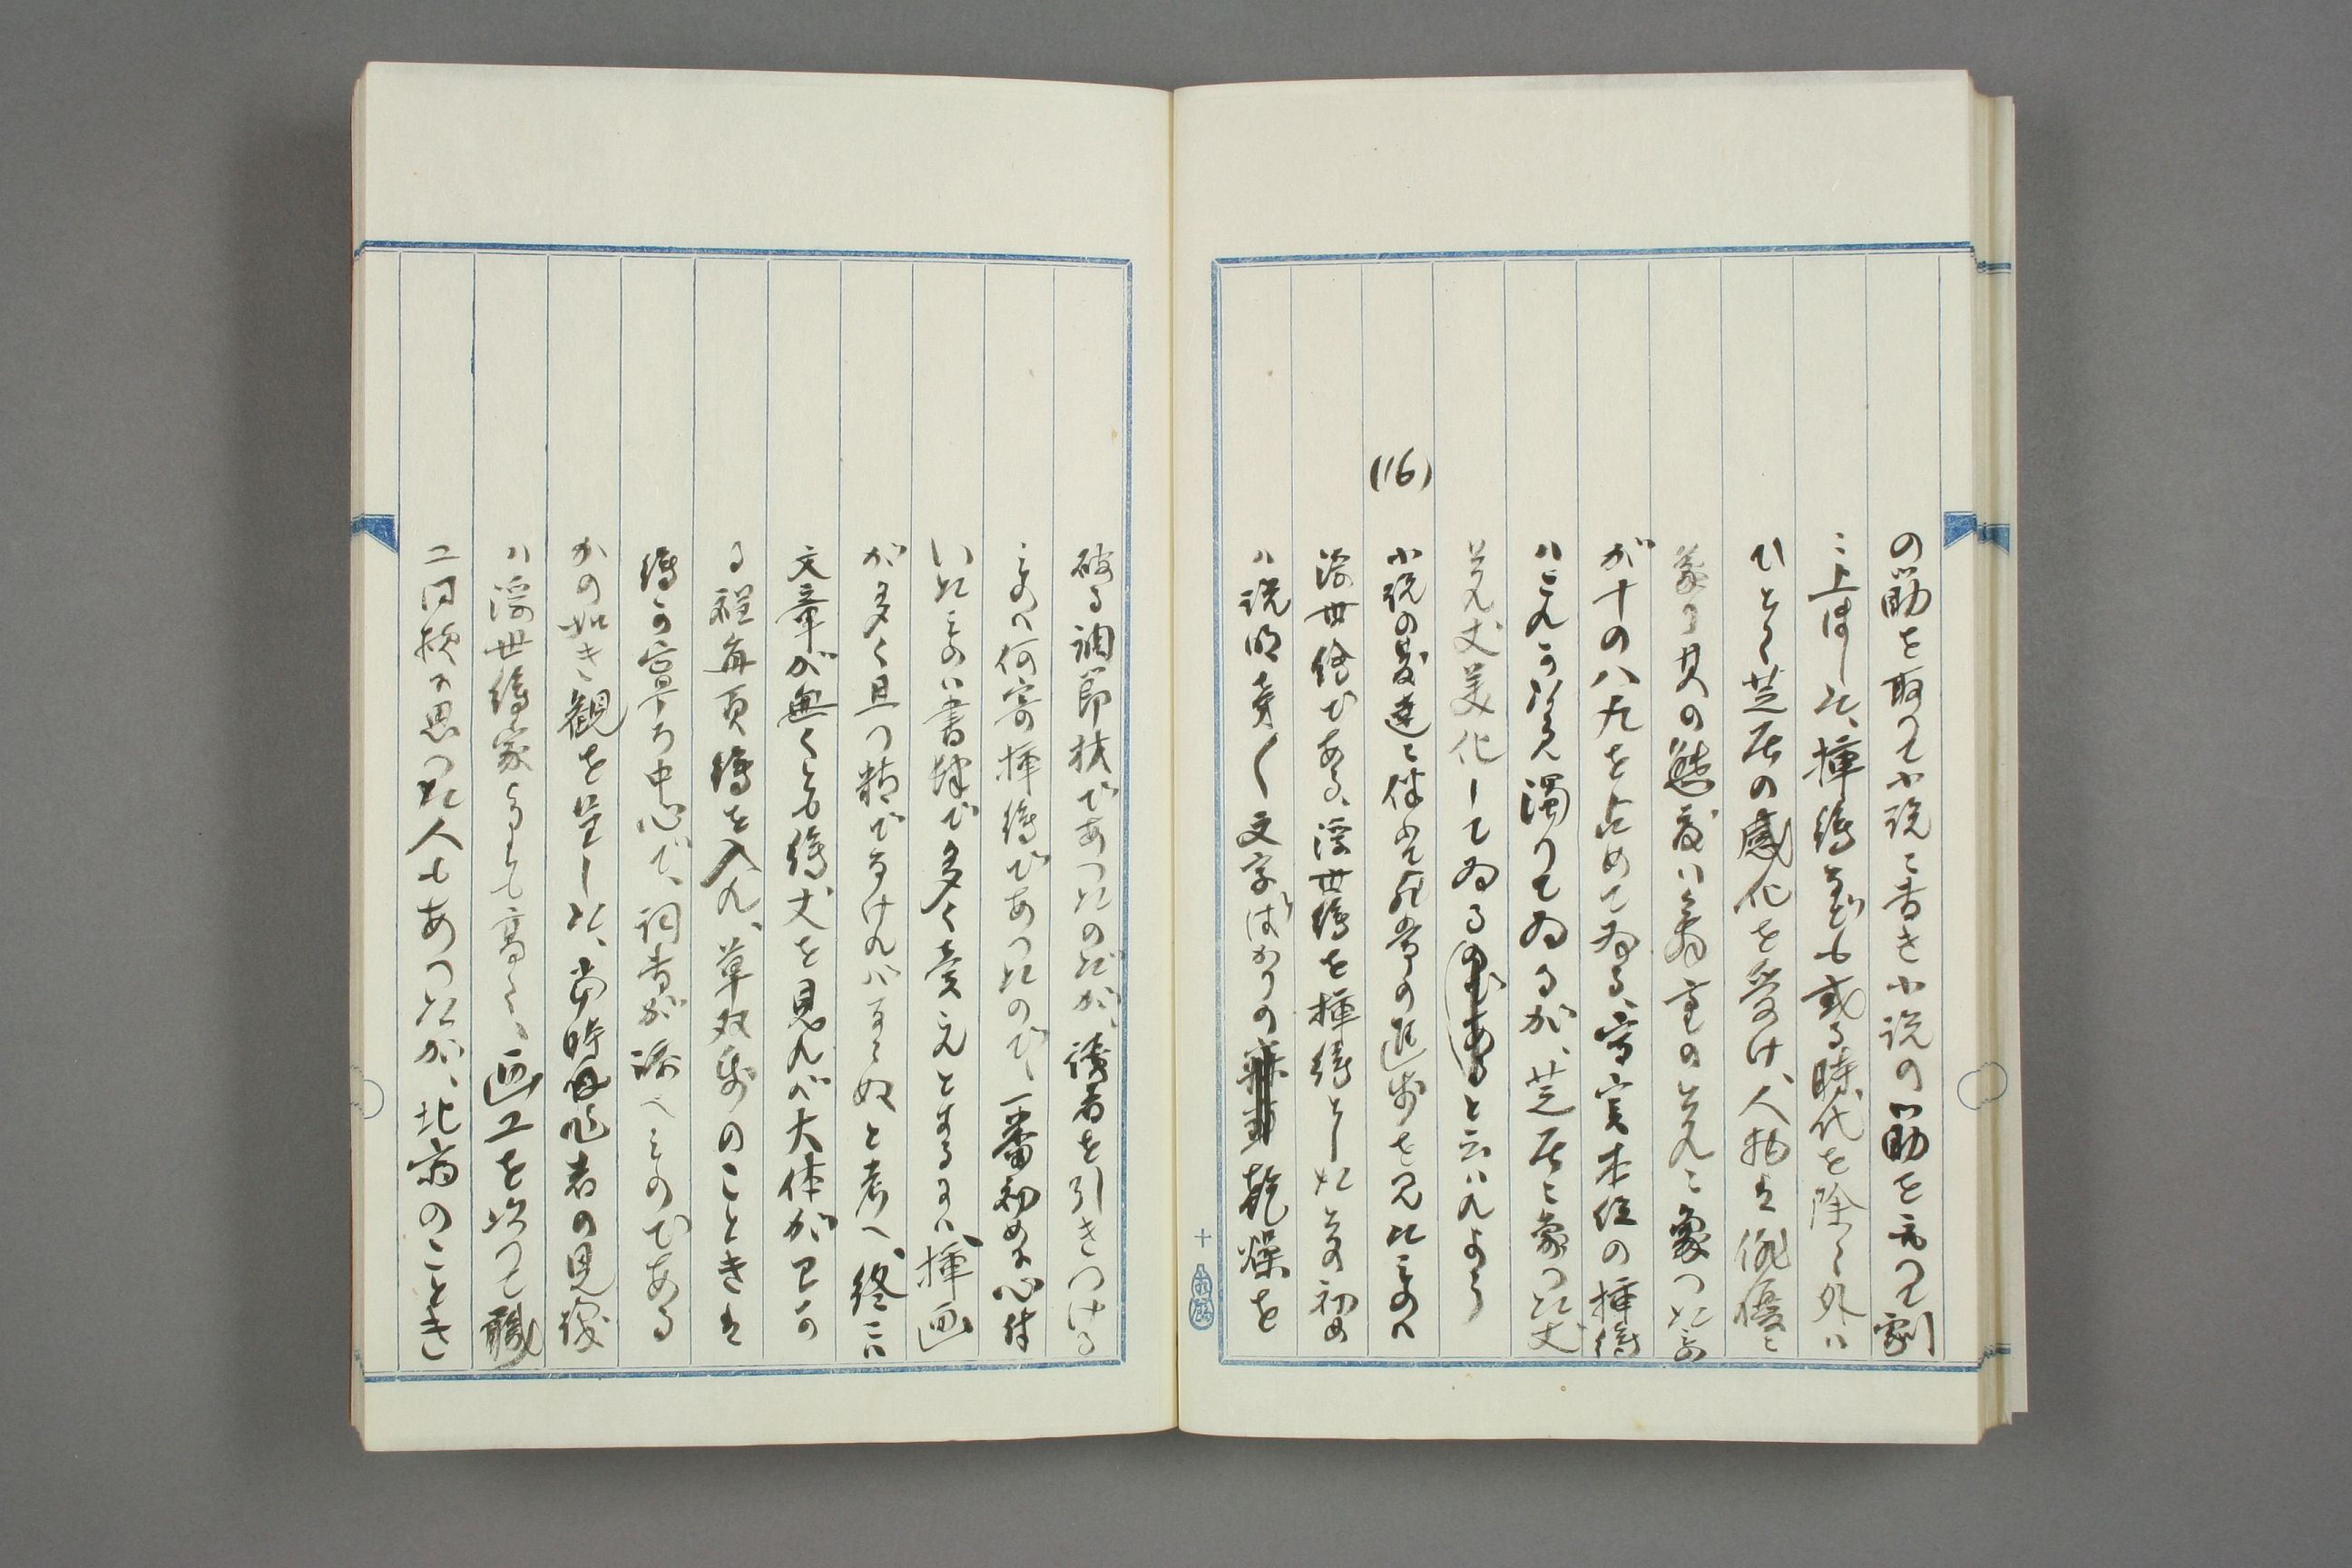 の筋を取つて小説に書き小説の筋を取つて劇
に上せた、挿絵なども或る時代を除く外ハ
ひとしく芝居の感化を受け、人物は俳優に
募り其の態度ハ
が十の八九を占めてゐる、写実本位の挿絵
ハこれに濁つてゐるが、芝居に象つた丈
丈美化してゐると云ハれよう
(16)
小説の発達に伴ふて の進歩を見たものハ
浮世絵である、浮世絵を挿絵とした初め
ハ説明 く文字ばかりの乾燥を
破る調節 であつたのだが、読者を引きつける
ものハ何寄挿絵であつたので、一番初めに心付
いたものハ書肆で多く売んとするにハ挿画
が多く且つ精でなければならぬと考へ、終にハ
文章が無くとも絵丈を見れバ大体が早分
る程毎頁絵を入れ、草双紙のごときは
絵が寧ろ中心で、詞書が添へものである
かの如き観を呈した、当時作者の見識
ハ浮世絵家よりも高く、画工を以つて職
工同様に思つた人もあつたが、北斎のごとき
十